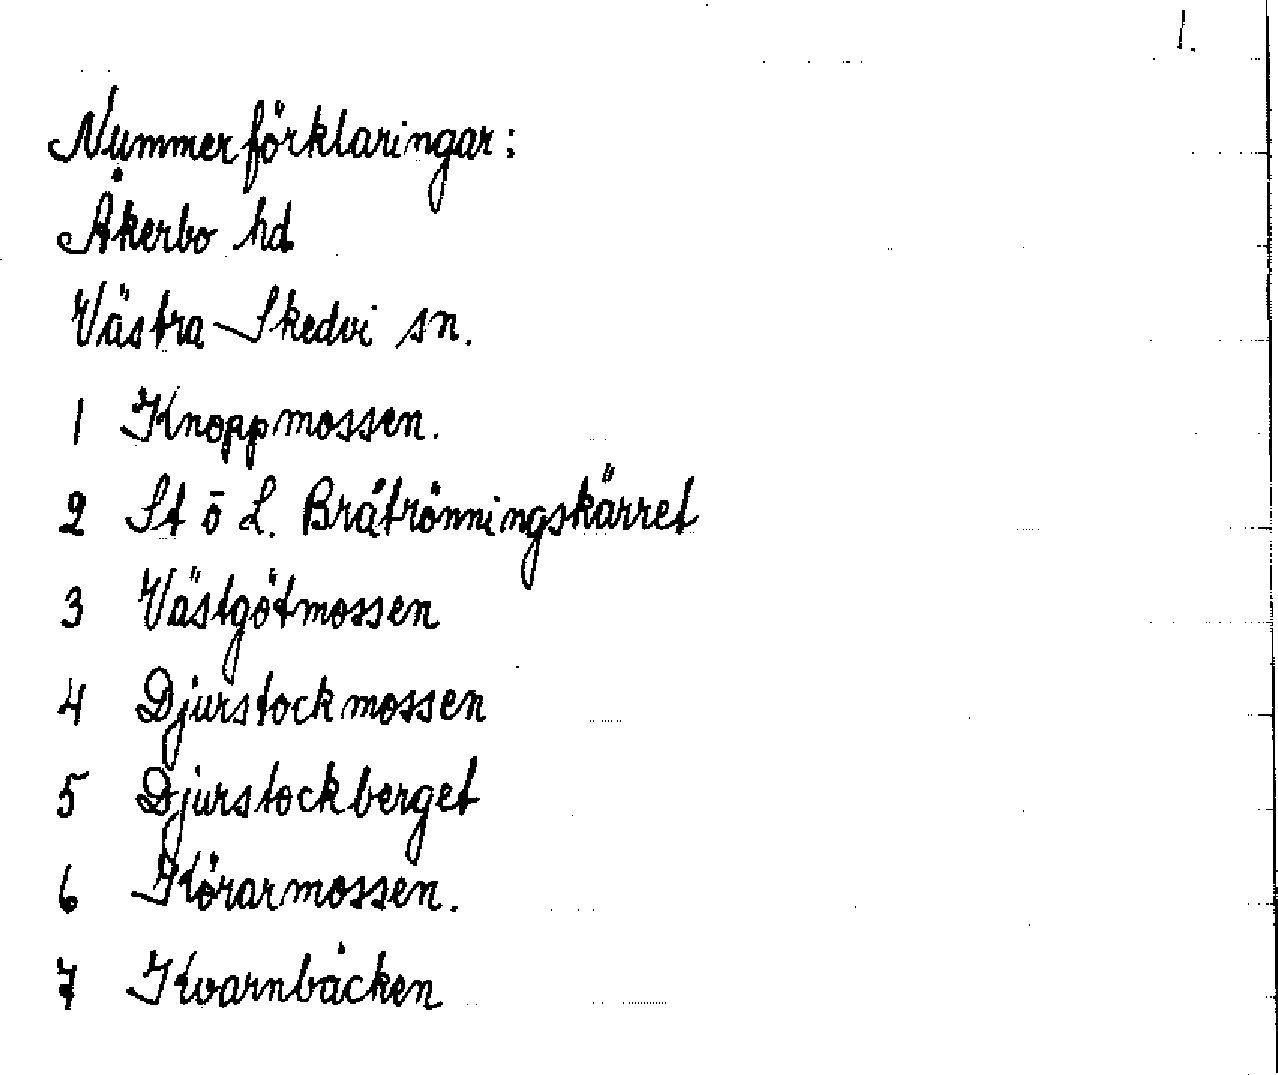 1.
Nummerförklaringar:
Åkerbo hd
Västra-Skedvi sn.
1 Knoppmossen.
2 St ō L. Bråtrönningskärret
3 Västgötmossen
4 Djurstockmossen
5 Djurstockberget
6 Körarmossen.
7 Kvarnbäcken